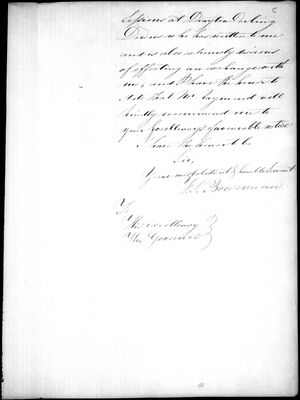 Express at Drayton Darling
Downs who has written to me
and is also extremely desirous
of effecting an exchange with
me, and I have the honor to
state that Mr
kindly recommend me to
your Excellency's favourable notice
I have the honor to be
Sir,
Your most obedient & humble Servant
Bowerman
To
His Excellency
The Governor